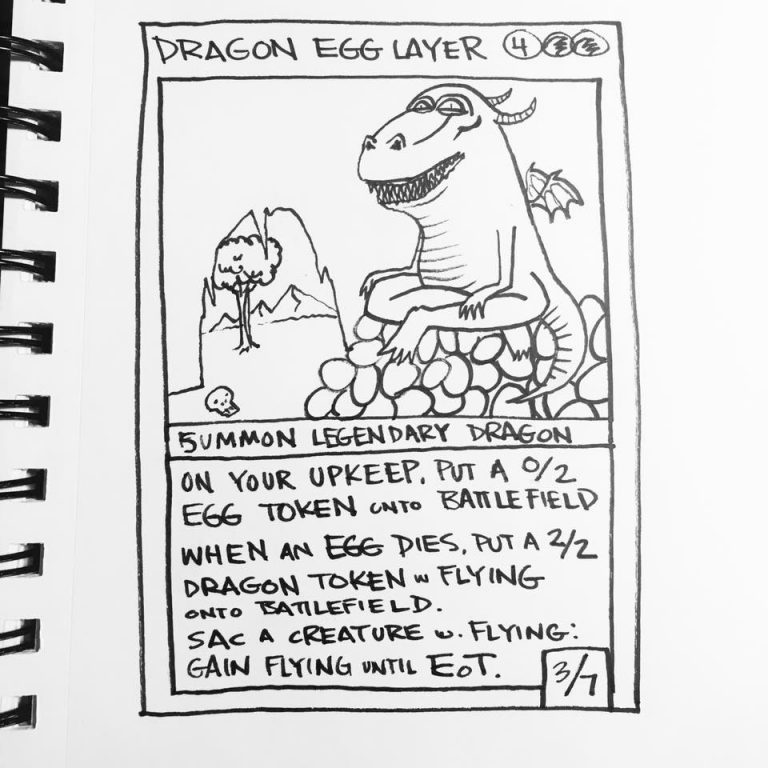 DRAGON EGG LAYER 4
SUMMON LEGENDARY DRAGON
ON YOUR UPKEEP, PUT A 0/2
EGG TOKEN ONTO BATTLEFIELD
WHEN AN EGG DIES, PUT A 2/2
DRAGON TOKEN w FLYING
ONTO BATTLEFIELD.
SAC A CREATURE w. FLYING:
GAIN FLYING UNTIL EOT.
3/7